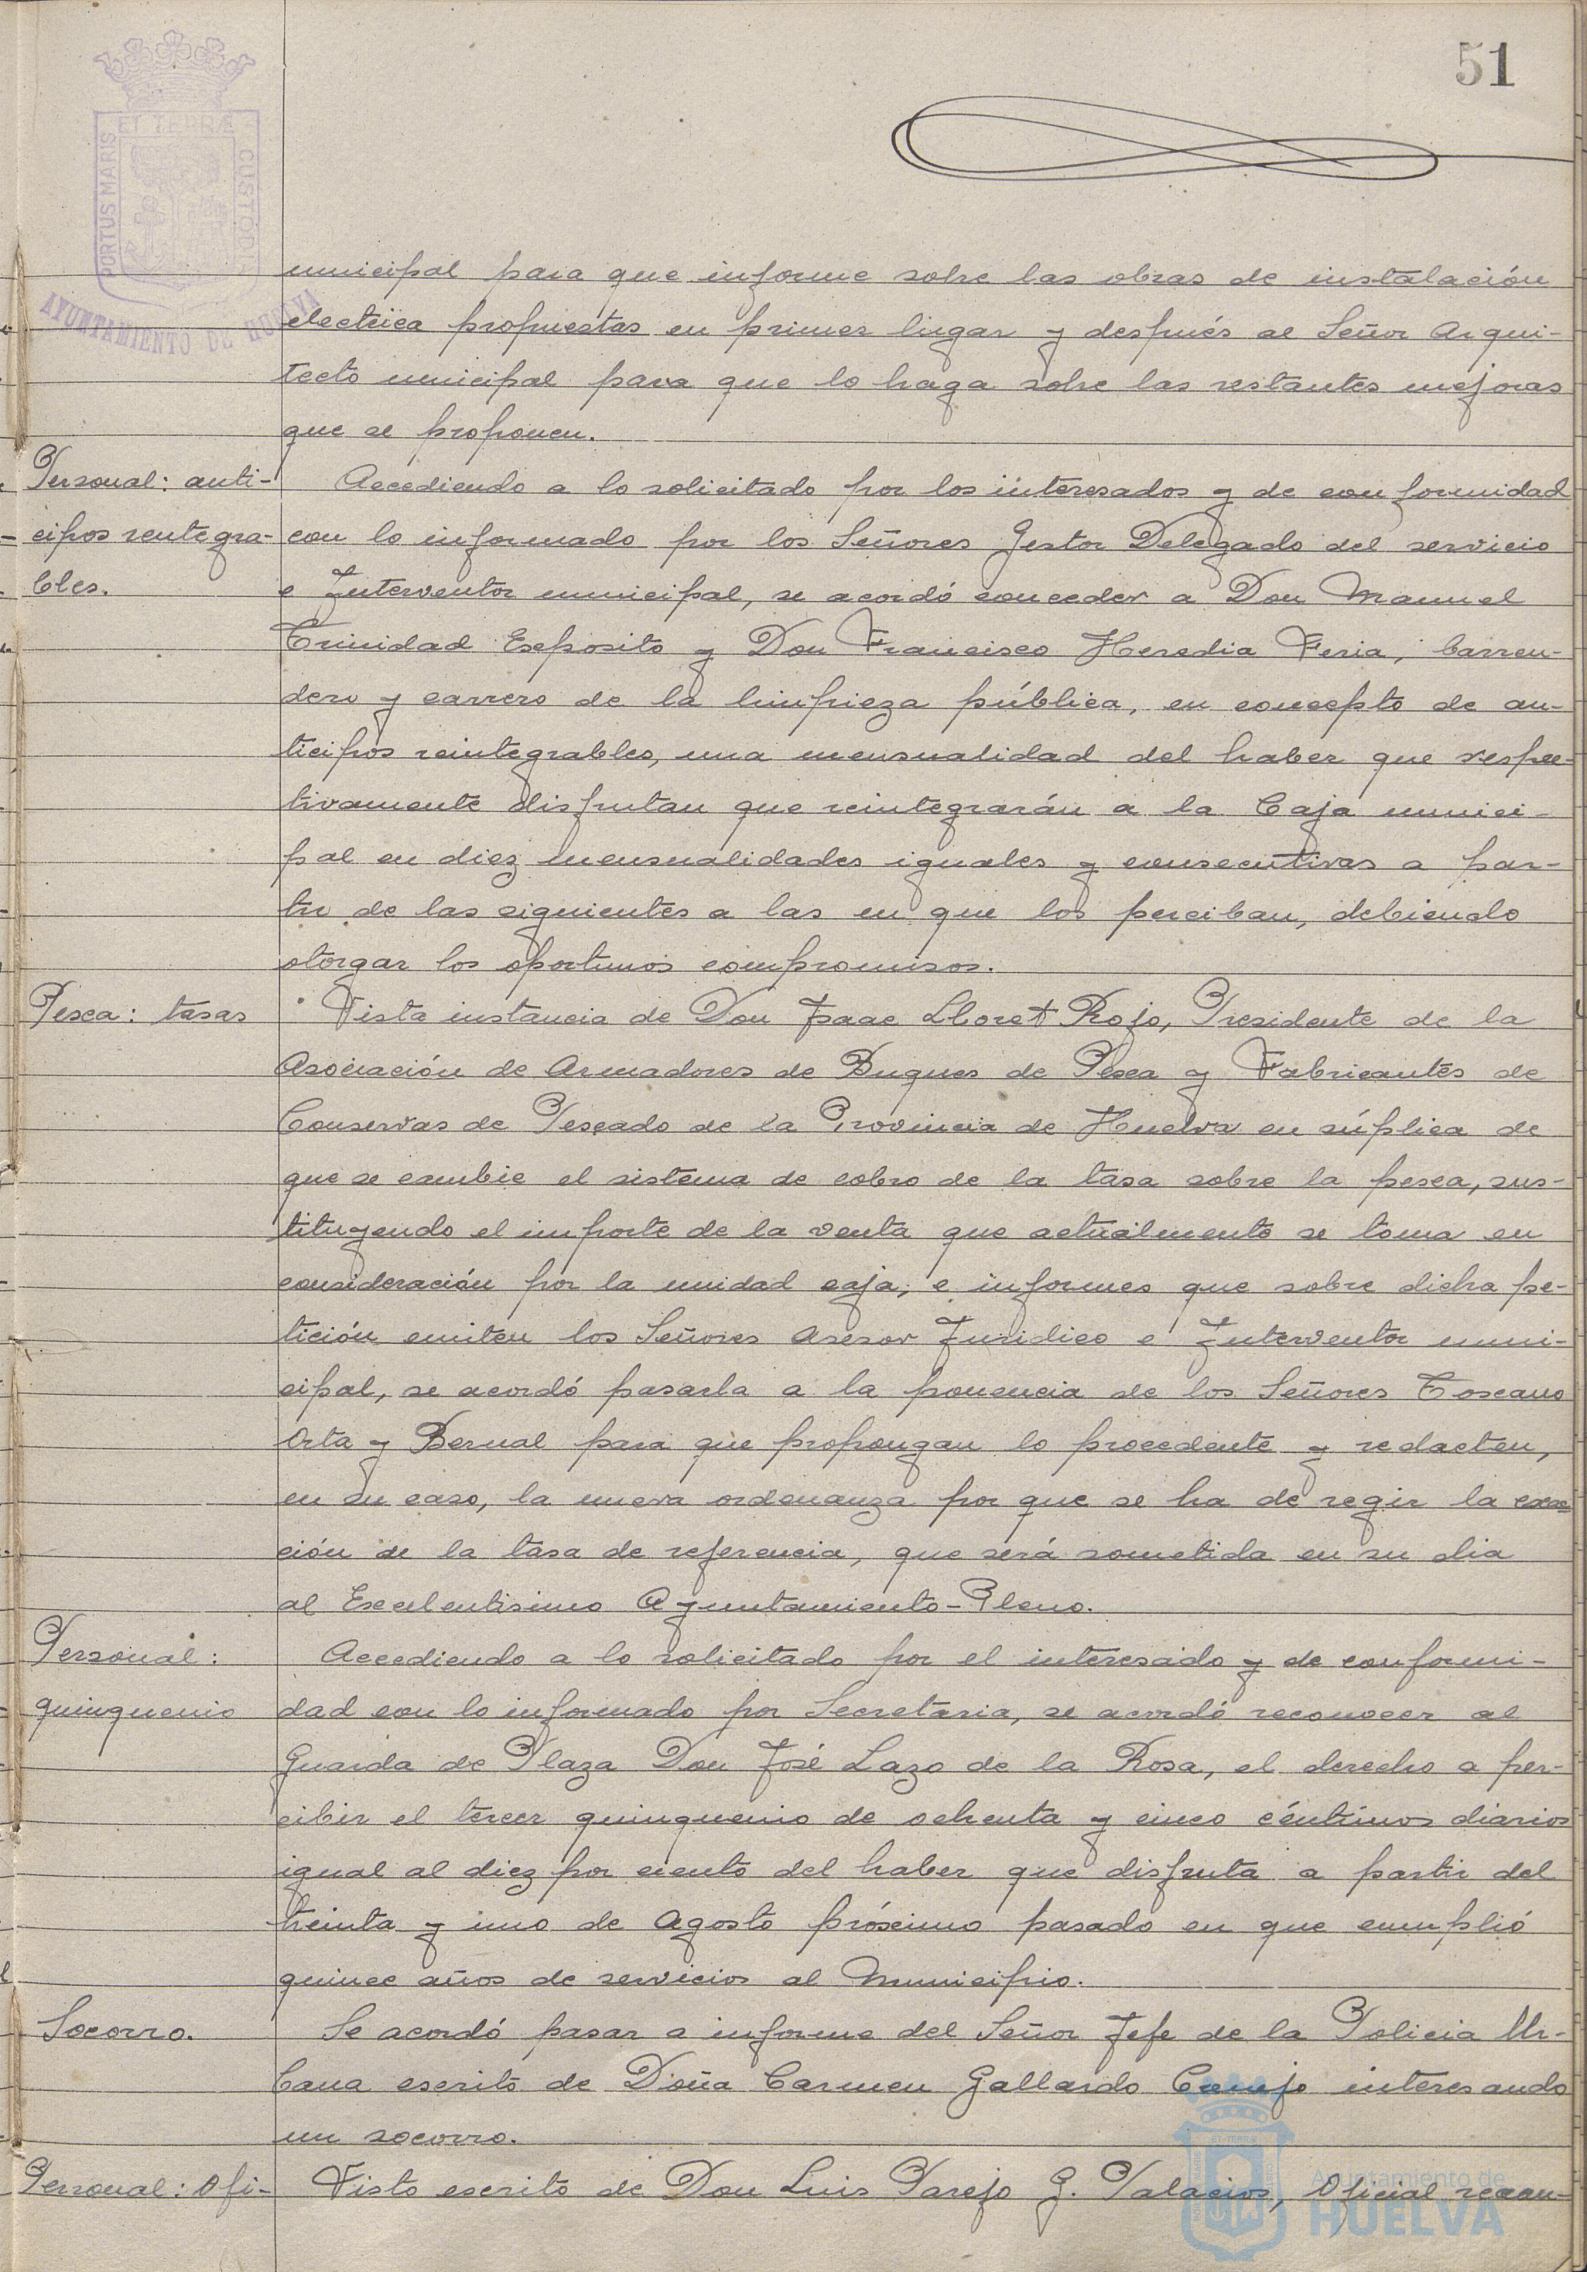 51
PORTUS MARIS
ET TERRE
CUSTODI
AYUNTAMIENTO DE HUELVA
municipal para que informe sobre las obras de instalación
electrica propuestas en primer lugar y después al Señor Arqui-
tecto municipal para que lo haga sobre las restantes mejoras
que se proponen.
Personal: anti-
cipos rentegra-
bles.
Accediendo a lo solicitado por los interesados y de conformidad
con lo informado por los Señores Gestor Delegado del servicio
e Interventor municipal, se acordó conceder a Don Manuel
Trinidad Esposito y Don Francisco Heredia Feria, barren-
dero y carrero de la limpieza pública, en concepto de an-
ticipos reintegrables, una mensualidad del haber que respec-
tivamente disfrutan que reintegrarán a la Caja munici-
pal en diez mensualidades iguales y consecutivas a par-
tir de las siguientes a las en que los perciban, debiendo
otorgar los oportunos compromisos.
Pesca: tasas
Vista instancia de Don Isaac Lloret Rojo, Presidente de la
Asociación de Armadores de Buques de Pesca y Fabricantes de
Conservas de Pescado de la Provincia de Huelva en súplica de
que se cambie el sistema de cobro de la tasa sobre la pesca, sus-
tituyendo el importe de la venta que actualmente se toma en
consideración por la unidad caja, e informes que sobre dicha pe-
tición emiten los Señores Asesor Juridico e Interventor muni-
cipal, se acordó pasarla a la ponencia de los Señores Toscano
Orta y Bernal para que propongan lo procedente y redacten,
en su caso, la nueva ordenanza por que se ha de regir la exac-
ción de la tasa de referencia, que será sometida en su dia
al Excelentisimo Ayuntamiento-Pleno.
Personal:
quinquenio
Accediendo a lo solicitado por el interesado y de conformi-
dad con lo informado por Secretaria, se acordó reconocer al
Guarda de Plaza Don José Lazo de la Rosa, el derecho a per-
cibir el tercer quinquenio de ochenta y cinco céntimos diarios
igual al diez por ciento del haber que disfruta a partir del
treinta y uno de Agosto próximo pasado en que cumplió
quince años de servicios al Municipio.
Socorro.
Se acordó pasar a informe del Señor Jefe de la Policia Ur-
bana escrito de Doña Carmen Gallardo Cornejo interesando
un socorro.
Personal: Ofi-
Visto escrito de Don Luis Parejo G. Palacios, Oficial recau-
Ayuntamiento de
HUELVA